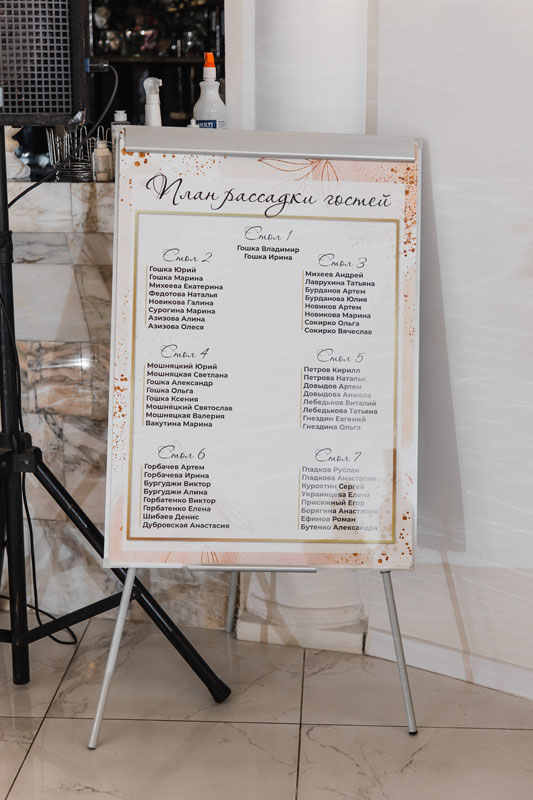 MULTI
План рассадки гостей
Стол 1
Гошка Владимир
Гошка Ирина
Стол 2
Гошка Юрий
Гошка Марина
Михеева Екатерина
Федотова Наталья
Новикова Галина
Сурогина Марина
Азизова Алина
Азизова Олеся
Стол 3
Михеев Андрей
Лаврухина Татьяна
Бурданов Артем
Бурданова Юлия
Новиков Артем
Новикова Марина
Сокирко Ольга
Сокирко Вячеслав
Стол 4
Мошняцкий Юрий
Мошняцкая Светлана
Гошка Александр
Гошка Ольга
Гошка Ксения
Мошняцкий Святослав
Мошняцкая Валерия
Вакутина Марина
Стол 5
Петров Кирилл
Петрова Наталья
Довыдов Артем
Довыдова Анжела
Лебедьков Виталий
Лебедькова Татьяна
Гнездин Евгений
Гнездина Ольга
Стол 6
Горбачев Артем
Горбачева Ирина
Бургуджи Виктор
Бургуджи Алина
Горбатенко Виктор
Горбатенко Елена
Шибаев Денис
Дубровская Анастасия
Стол 7
Гладков Руслан
Гладкова Анастасия
Курохтин Сергей
Украинцева Елена
Присяжный Егор
Борягина Анастасия
Ефимов Роман
Бутенко Александра